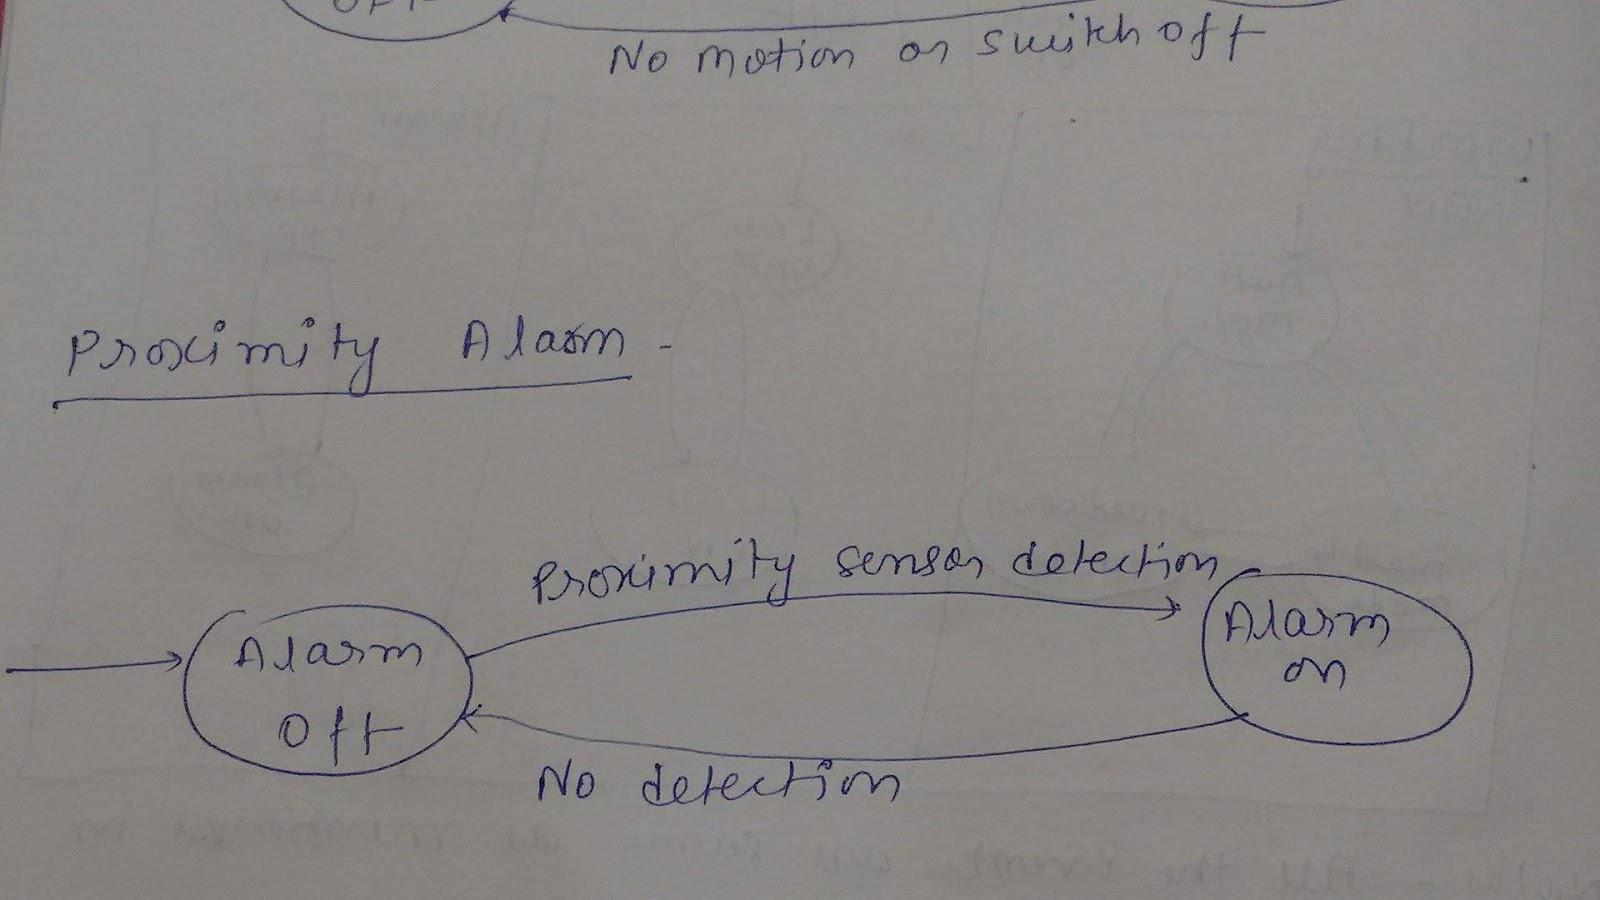 OFF
No motion or switch off
Proximity Alarm -
Proximity sensor detection
Alarm
off
Alarm
on
No detection